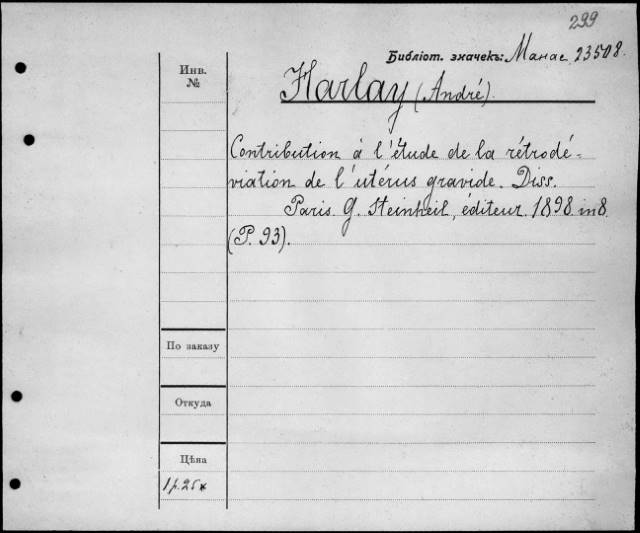 299
Библіот. значекъ: Манас 23508.
Инв.
№
Harlay (André).
Contribution à l'étude de la rétrodé-
viation de l'utérus gravide. Diss.
Paris. G. Steinheil, éditeur. 1898. in 8.
(P. 93).
По заказу
Откуда
Цѣна
1 р. 25 к